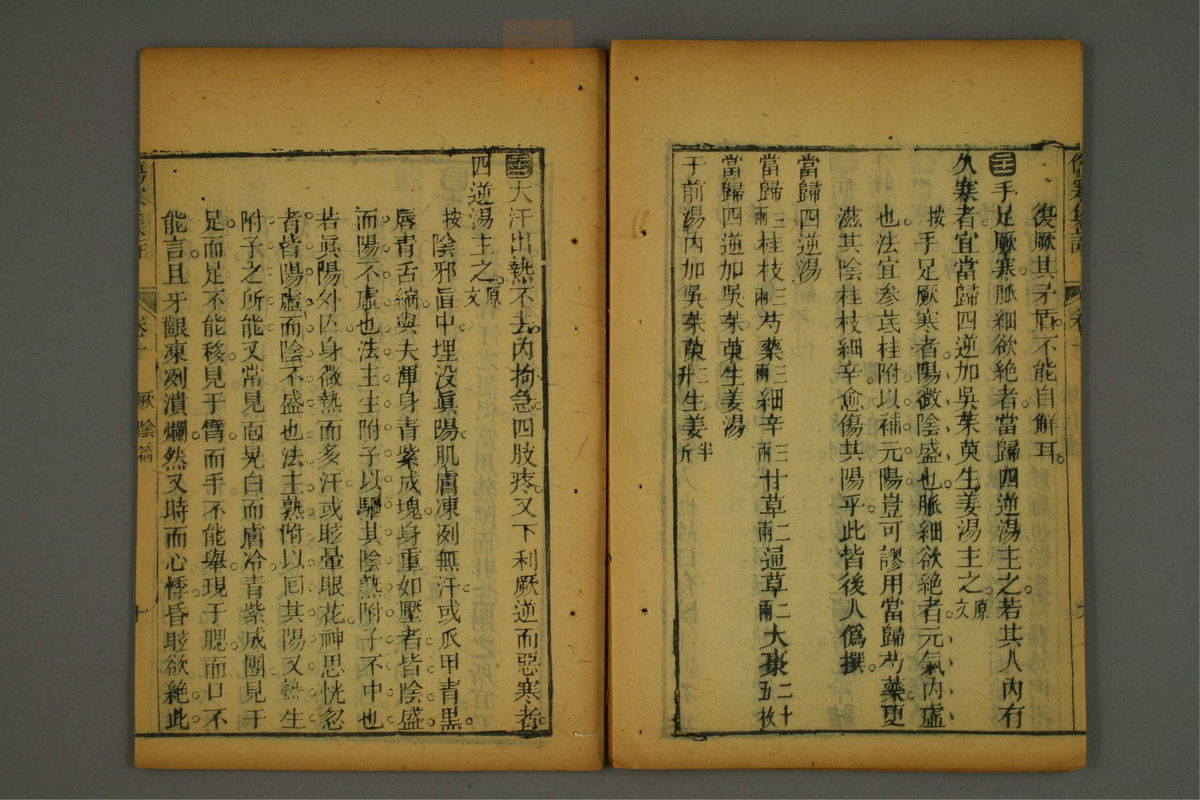 復厥其矛盾不能自解耳。
手足厥寒脈細欲絶者當歸四逆湯主之若其人內有
久寒者宜當歸四逆加吳茱萸生姜湯主之。原文
按手足厥寒者陽微陰盛也脈細欲絶者元氣內虛
也法宜參芪桂附以補元陽豈可謬用當歸芍藥更
滋其陰桂枝細辛愈傷其陽乎此皆後人僞撰。
當歸四逆湯
當歸三兩桂枝三兩芍藥三兩細辛三兩甘草二兩通草二兩大棗二十五枚
當歸四逆加吳茱萸生姜湯
于前湯內加吳茱萸二升生姜半斤
大汗出熱不去內拘急四肢疼又下利厥逆而惡寒者。
四逆湯主之。原文
按陰邪直中埋沒眞陽肌膚凍冽無汗或爪甲青黑。
唇青舌縮與夫渾身青紫成塊身重如壓者皆陰盛
而陽不虛也法主生附子以驅其陰熱附子不中也
若眞陽外亡身微熱而多汗或眩暈眼花神思恍忽
者皆陽虛而陰不盛也法主熟附以囘其陽又熟生
附子之所能又常見面晃白而膚冷青紫成團見于
足而足不能移見于臂而手不能舉現于腮而口不
能言且牙齦凍冽潰爛然又時而心悸昏眩欲絶此
卷十 厥陰篇 十